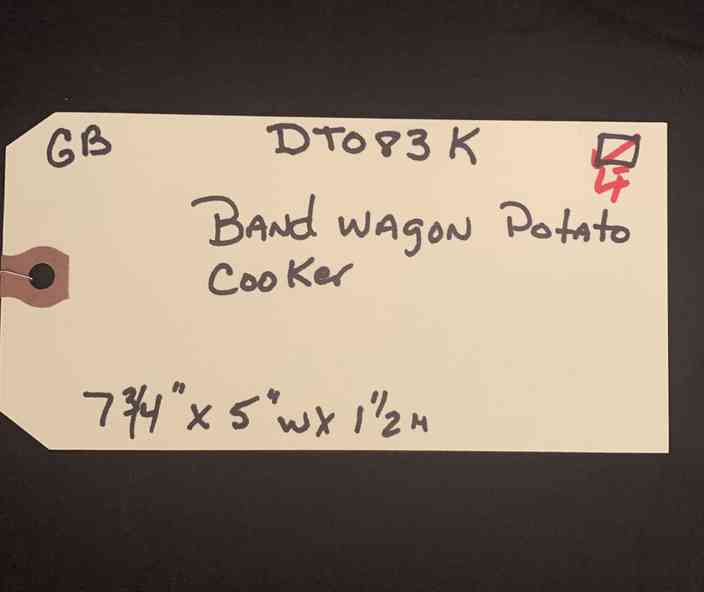 GB DT083K
4
Band Wagon Potato
Cooker
7 3/4" x 5" W x 1 1/2 H